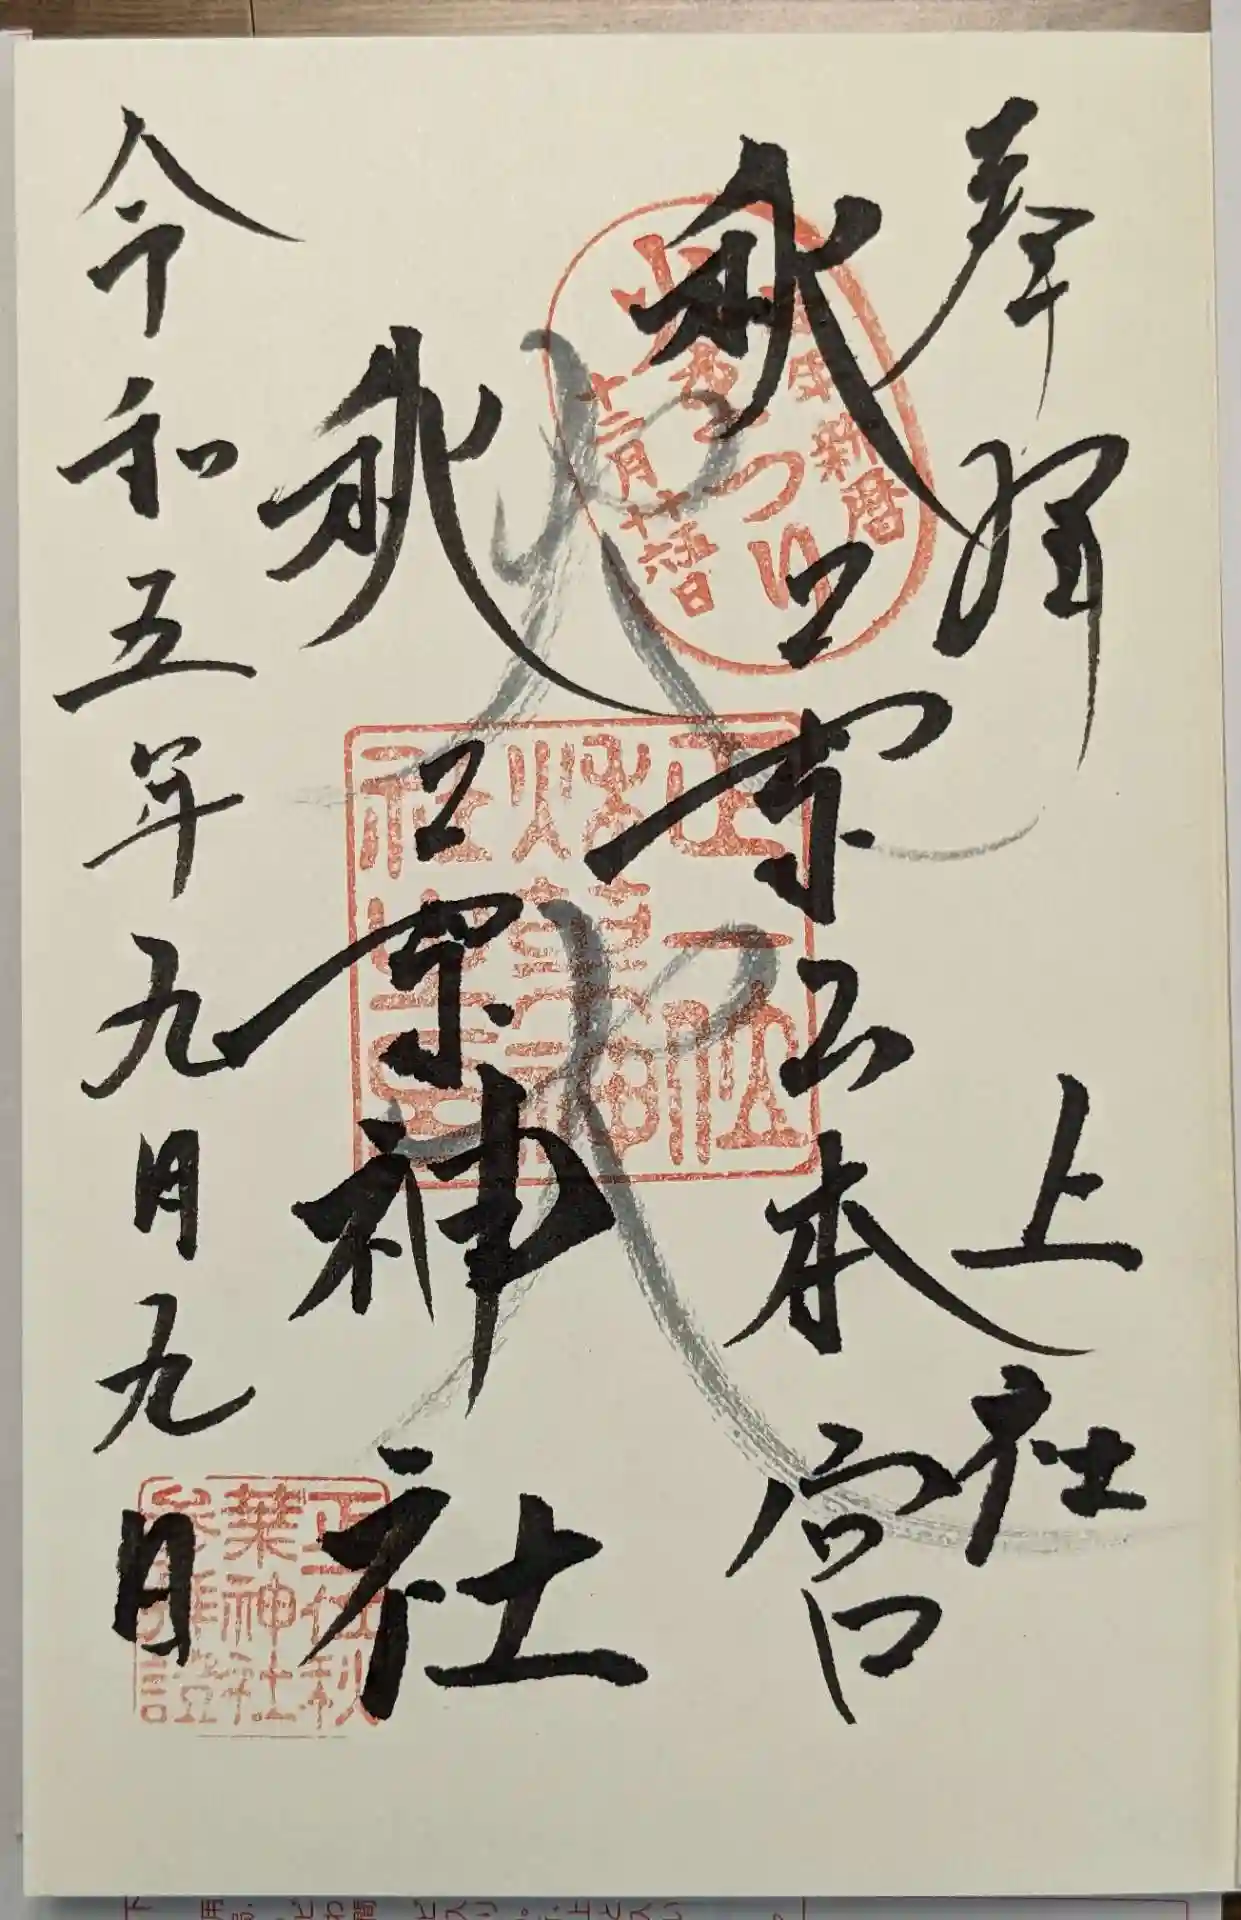 奉拝
上社
秋葉山本宮
秋葉神社
令和五年九月九日
新暦
十二月十六日
火まつり
正一位
秋葉神
社之璽
正一位秋
葉神社
参拝證